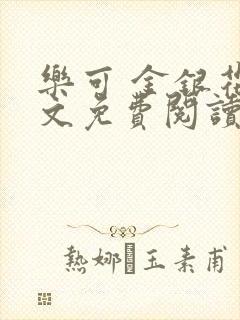 樂可 金銀花
文免費閱讀
熱娜·玉素甫